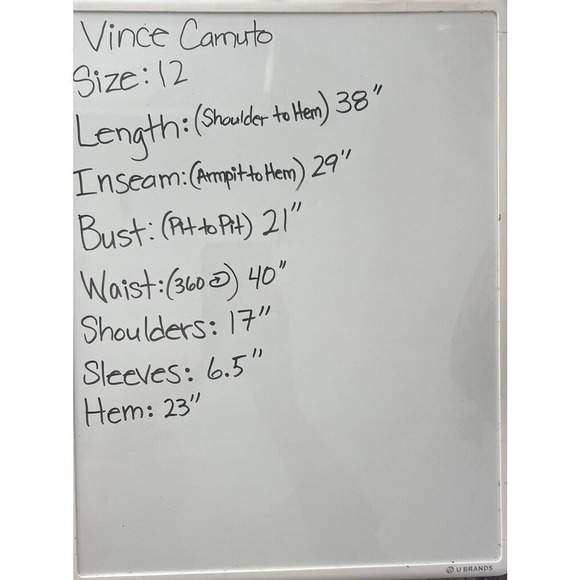 Vince Camuto
Size: 12
Length: (Shoulder to Hem) 38"
Inseam: (Armpit to Hem) 29"
Bust: (Pit to Pit) 21"
Waist: (360) 40"
Shoulders: 17"
Sleeves: 6.5"
Hem: 23"
U BRANDS